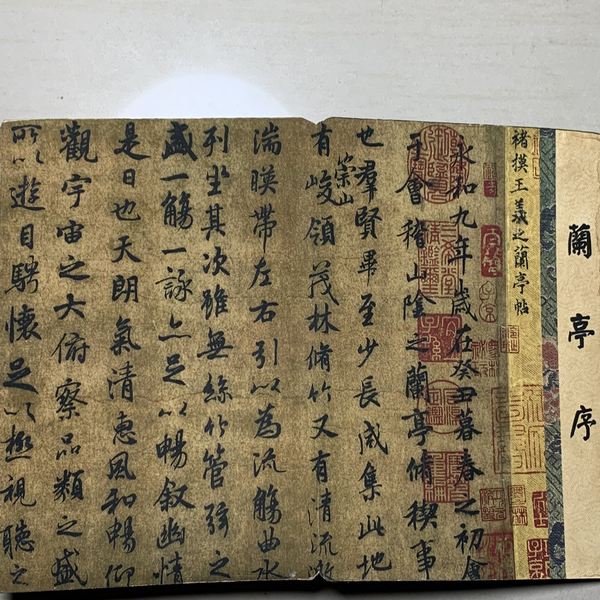 蘭亭序
褚摸王羲之蘭亭帖
永和九年歲在癸丑暮春之初會
于會稽山陰之蘭亭脩稧事
也羣賢畢至少長咸集此地
有崇山峻領茂林脩竹又有清流激
湍暎帶左右引以為流觴曲水
列坐其次雖無絲竹管弦之
盛一觴一詠亦足以暢敘幽情
是日也天朗氣清惠風和暢仰
觀宇宙之大俯察品類之盛
所以遊目騁懷足以極視聽之